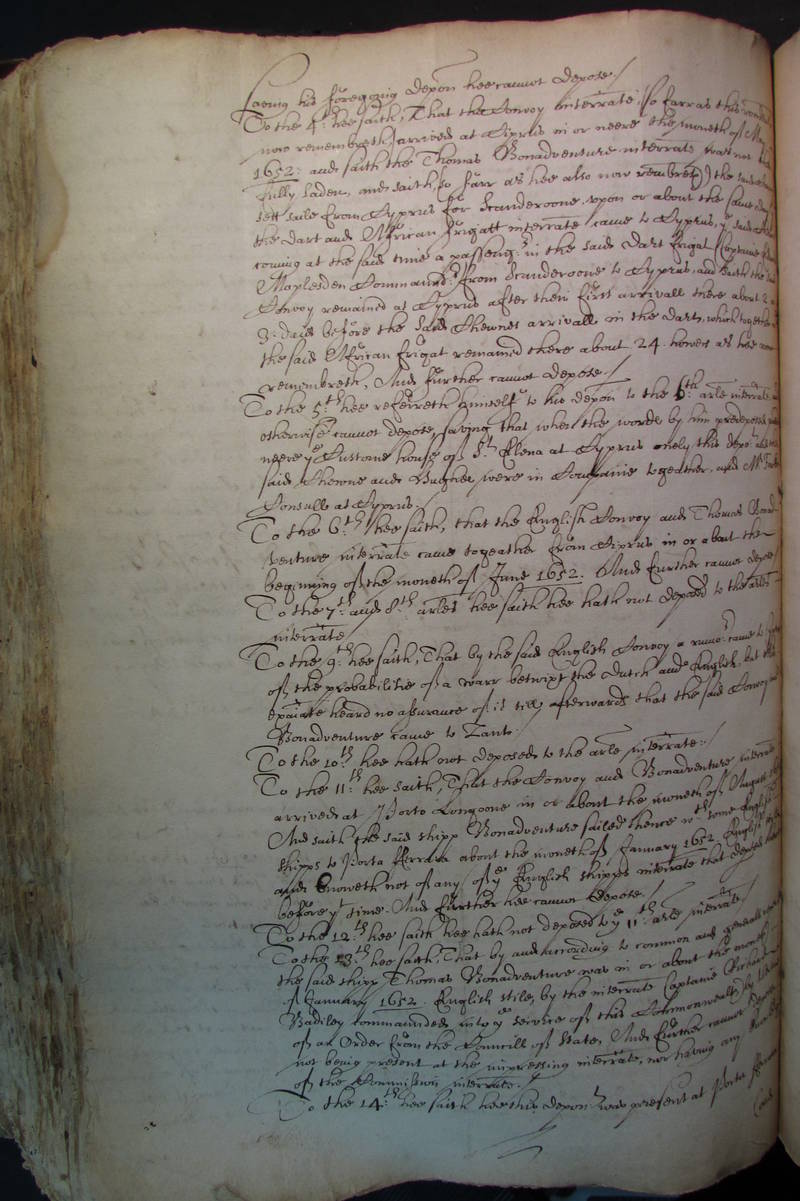 Saving his foregoing depon hee cannot depose./
To the 4th. hee saith, That the Convoy interrate (so farr as this rendt
now remembreth) arrived at Ciprus in or neere the moneth of May
1652: and saith the Thomas Bonadventure interrate was not then
fully laden, and saith (so farr as hee also now remembreth) the
sett saile from Cyprus for Scanderoone, upon or about the same day
the dart and African frigatt interrate came to Cyprus, ye said
coming at the said time a passenger in the said Dart frigat (Captaine
Maplesden Commaunder) from Scanderoone to Cyprus, and saith the said
Convoy remained at Cyprus after their first arrivall there about 2 or
3: daies before the said Thewnes arrivall in the dart, which together
the said African frigat remained there about 24. howers as hee now
remembreth, And further cannot depose./
To the 5th. hee referreth himself to his depon to the 6th arle interrate
otherwise cannot depose, saving that when the words by him predeposed
neere ye Custome house of St. Elena at Cyprus onely this depot and
said Thewne and Bugher were in Companie togeather, and Mr
Consull at Cyprus./
To the 6th. hee saith, that the English Convoy and Thomas Bonad
venture interrate came togeather from Ciprus in or about the
beginning of the moneth of June 1652. And further cannot depose
To the 7th. and 8th. arles hee saith hee hath not deposed to the arles
interrate
To the 9th. hee saith, That by the said English Convoy a rumor came to
of the probabilitie of a warr betwixt the Dutch and English, but this
heard no assurance of it till afterwards that the said Convoy and
Bonadventure came to Zant./
To the 10th. hee hath not deposed to the arle interrate./
To the 11th. hee saith, That the Convoy and Bonadventure interrate
arrived at Porto Longoone in or about the moneth of August
And saith the said shipp Bonadventure sailed thence wth some English
shipps to Porta Ferrara about the moneth of January 1652 English
and knoweth not of any of ye English shipps interrate that departed
before yt time. And further hee cannot depose./
To the 12th. hee saith hee hath not deposed to ye 11th. arle interrate./
To the 13th. hee saith, That by and according to common and generall
the said shipp Thomas Bonadventure was in or about the moneth
of January 1652. English stile, by the interrate Captaine Richard
Badiley commaunded into ye service of this Commonwealth, by
of an Order from the Councill of State, And further cannot depose
not being present at the impressing interrate, nor having any
of the Commission interrate./
To the 14th. hee saith hee this depont was present at Porto